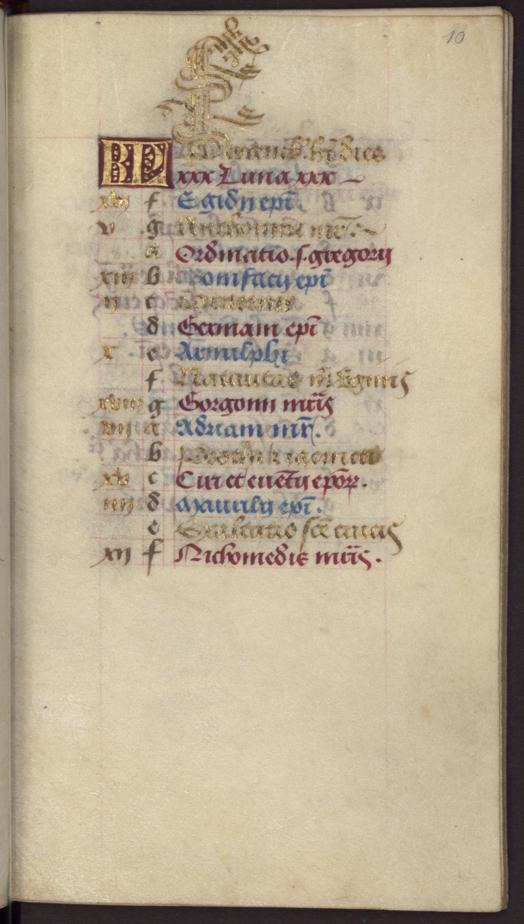 10
KL Septemb. ht dies
xxx Luna xxx
xvi f Egidii epi.
v g Anthonini mr.
a Ordinatio. s. gregorii
xiii b Bonifacii epi
ii c
d Germani epi
x e Arnulphi
f Natiuitas m. v͛ginis
xviii g Gorgonii mr̄is
vii a Adriani mr̄.
b Prothi & iacincti
xv c Ciri et euētii epor.
iiii d Maurilii epi.
e Exaltatio scē crucis
xii f Nichomedis mr̄is.